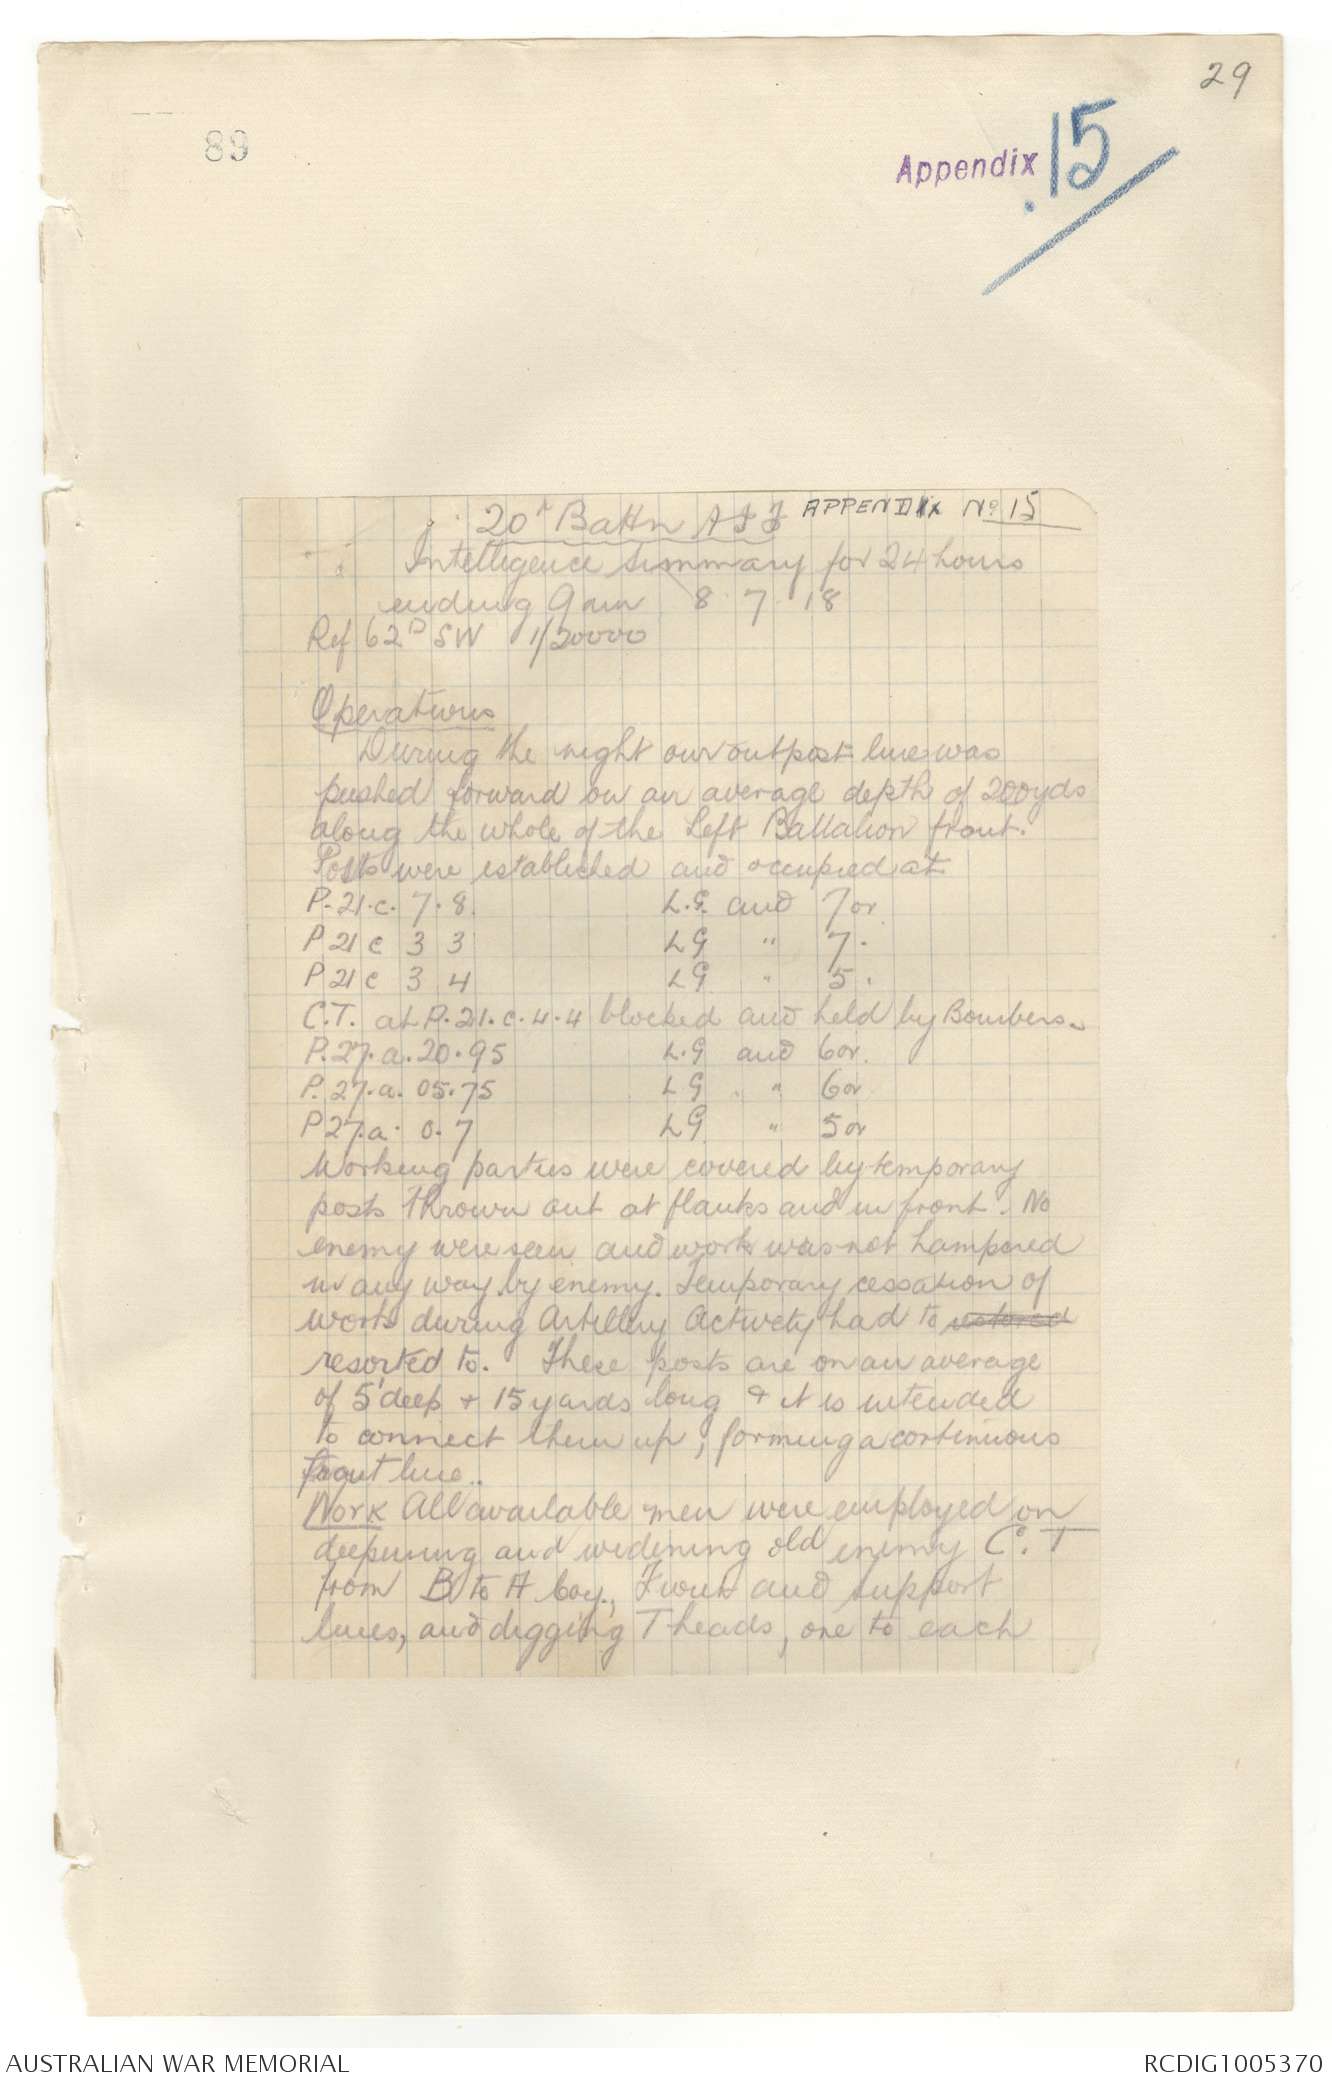 29
89
Appendix 15
20th Battn AIF APPENDIX No 15
Intelligence Summary for 24 hours
ending 9am 8.7.18
Ref 62D SW 1/20000
Operations
During the night our outpost line was
pushed forward on an average depth of 200yds
along the whole of the Left Battalion front.
Posts were established and occupied at
P.21.c.7.8 L.G. and 7 or.
P 21 c 3 3 LG " 7.
P 21 c 3 4 LG " 5.
C.T. at P.21.c.4.4 blocked and held by Bombers.
P.27.a.20.95 L.G and 6 or.
P.27.a.05.75 LG " " 6 or
P 27.a.0.7 LG " 5 or
Working parties were covered by temporary
posts thrown out at flanks and in front. No
enemy were seen and work was not hampered
in any way by enemy. Temporary cessation of
work during Artillery Activety had to
resorted to. These posts are on an average
of 5' deep + 15 yards long & it is intended
to connect them up, forming a continuous
front line.
Work All available men were employed on
deepening and widening old enemy C.T
from B to A Coy., Front and support
lines, and digging T heads, one to each
AUSTRALIAN WAR MEMORIAL
RCDIG1005370